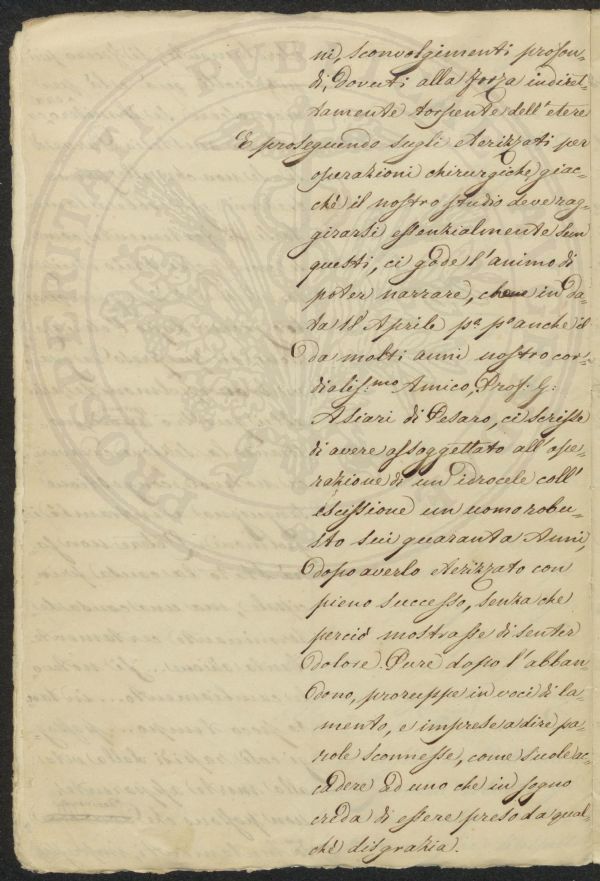 ni, sconvolgimenti profon-
di, dovuti alla forza indiret-
tamente torpente dell'etere
E proseguendo sugli eterizzati per
operazioni chirurgiche giac-
chè il nostro studio deve rag-
girarsi essenzialmente su
questi, ci gode l'animo di
poter narrare, che in da-
ta 18 Aprile p.º p.º anche il
da molti anni nostro cor-
dialis:mo Amico, Prof. G:
Asiari di Pesaro, ci scrisse
di avere assoggettato all'ope-
razione di un idrocele coll'
escissione un uomo robu-
sto sui quaranta Anni,
dopo averlo eterizzato con
pieno successo, senza che
perciò mostrasse di senter
dolore. Pure dopo l'abban-
dono, proruppe in voci di la-
mento, e imprese a dire pa-
role sconnesse, come suole ac-
cadere ad uno che in sogno
creda di essere preso da qual-
che disgrazia.